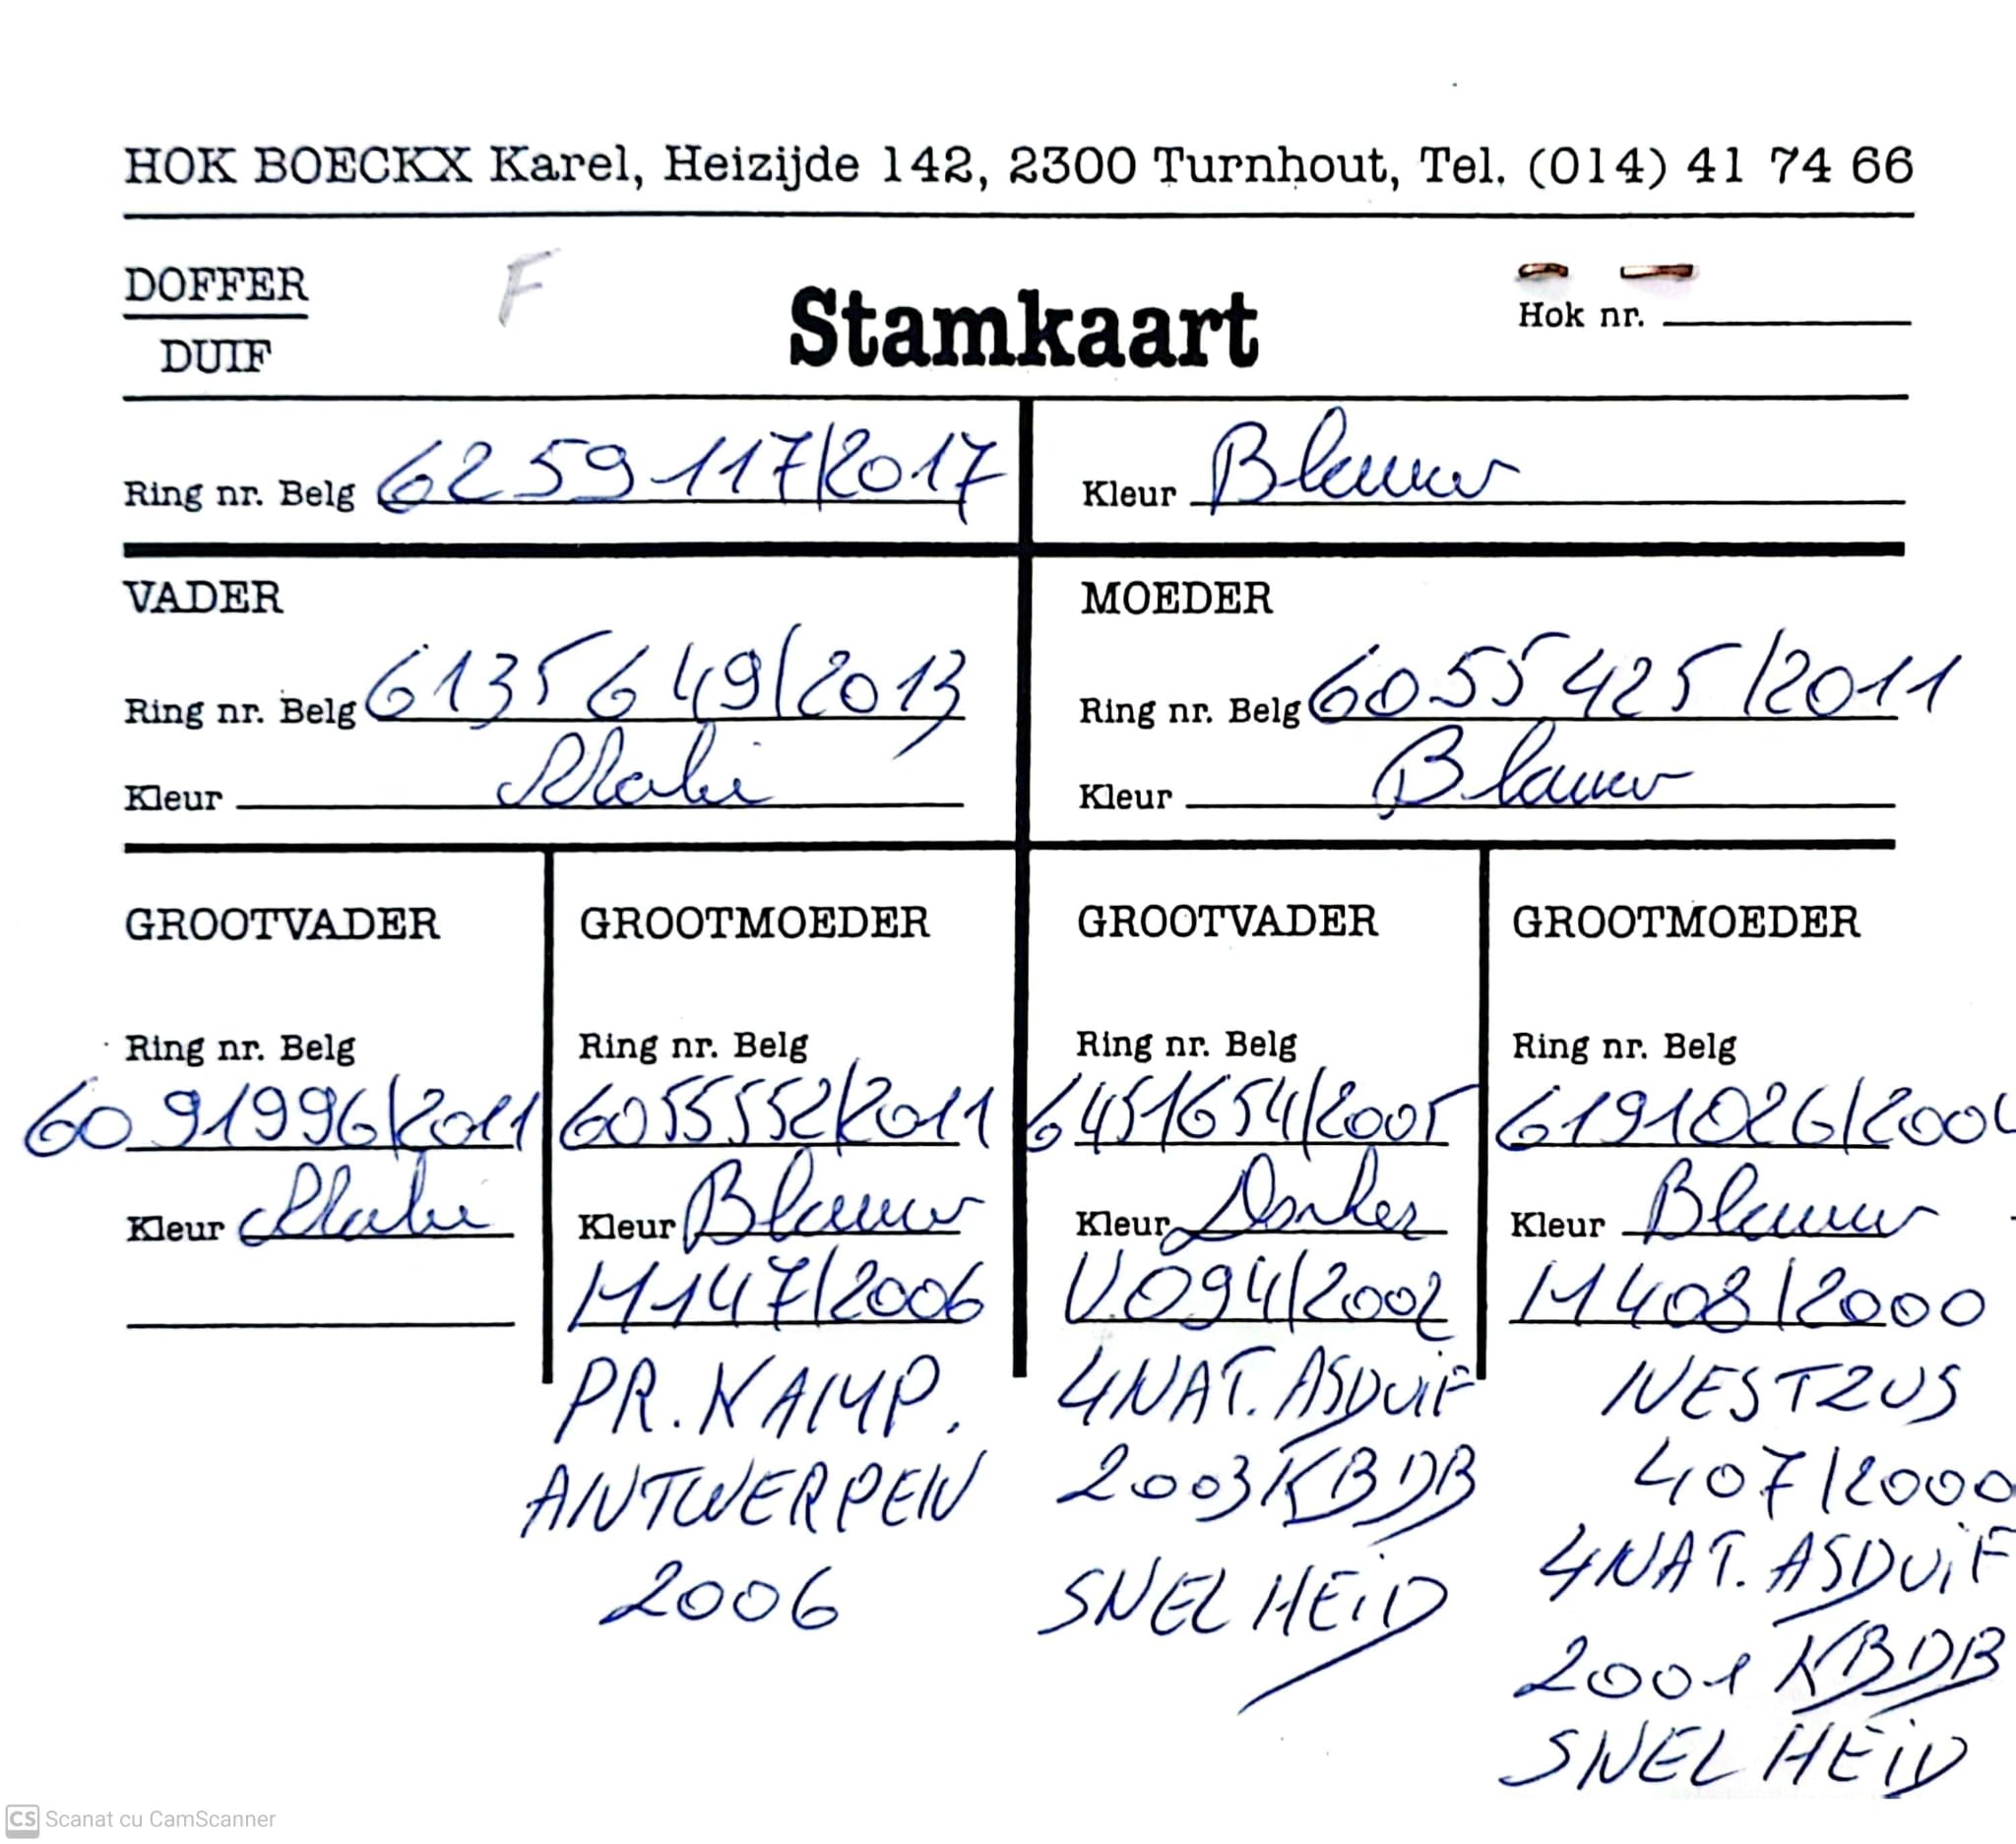 HOK BOECKX Karel, Heizijde 142, 2300 Turnhout, Tel. (014) 41 74 66
DOFFER
DUIF
F
Stamkaart
Hok nr.
Ring nr. Belg 6259117/2017
Kleur Blauw
VADER
Ring nr. Belg 6135649/2013
Kleur
MOEDER
Ring nr. Belg 6055425/2011
Kleur Blauw
GROOTVADER
Ring nr. Belg
6091996/2011
Kleur
GROOTMOEDER
Ring nr. Belg
6055552/2011
Kleur Blauw
M147/2006
PR. KAMP.
ANTWERPEN
2006
GROOTVADER
Ring nr. Belg
6451654/2005
Kleur Donker
V.094/2002
4NAT. ASDUiF
2003 KBDB
SNELHEiD
GROOTMOEDER
Ring nr. Belg
Kleur Blauw
M408/2000
NESTZUS
407/2000
4NAT. ASDUiF
2001 KBDB
SNELHEiD
CS Scanat cu CamScanner